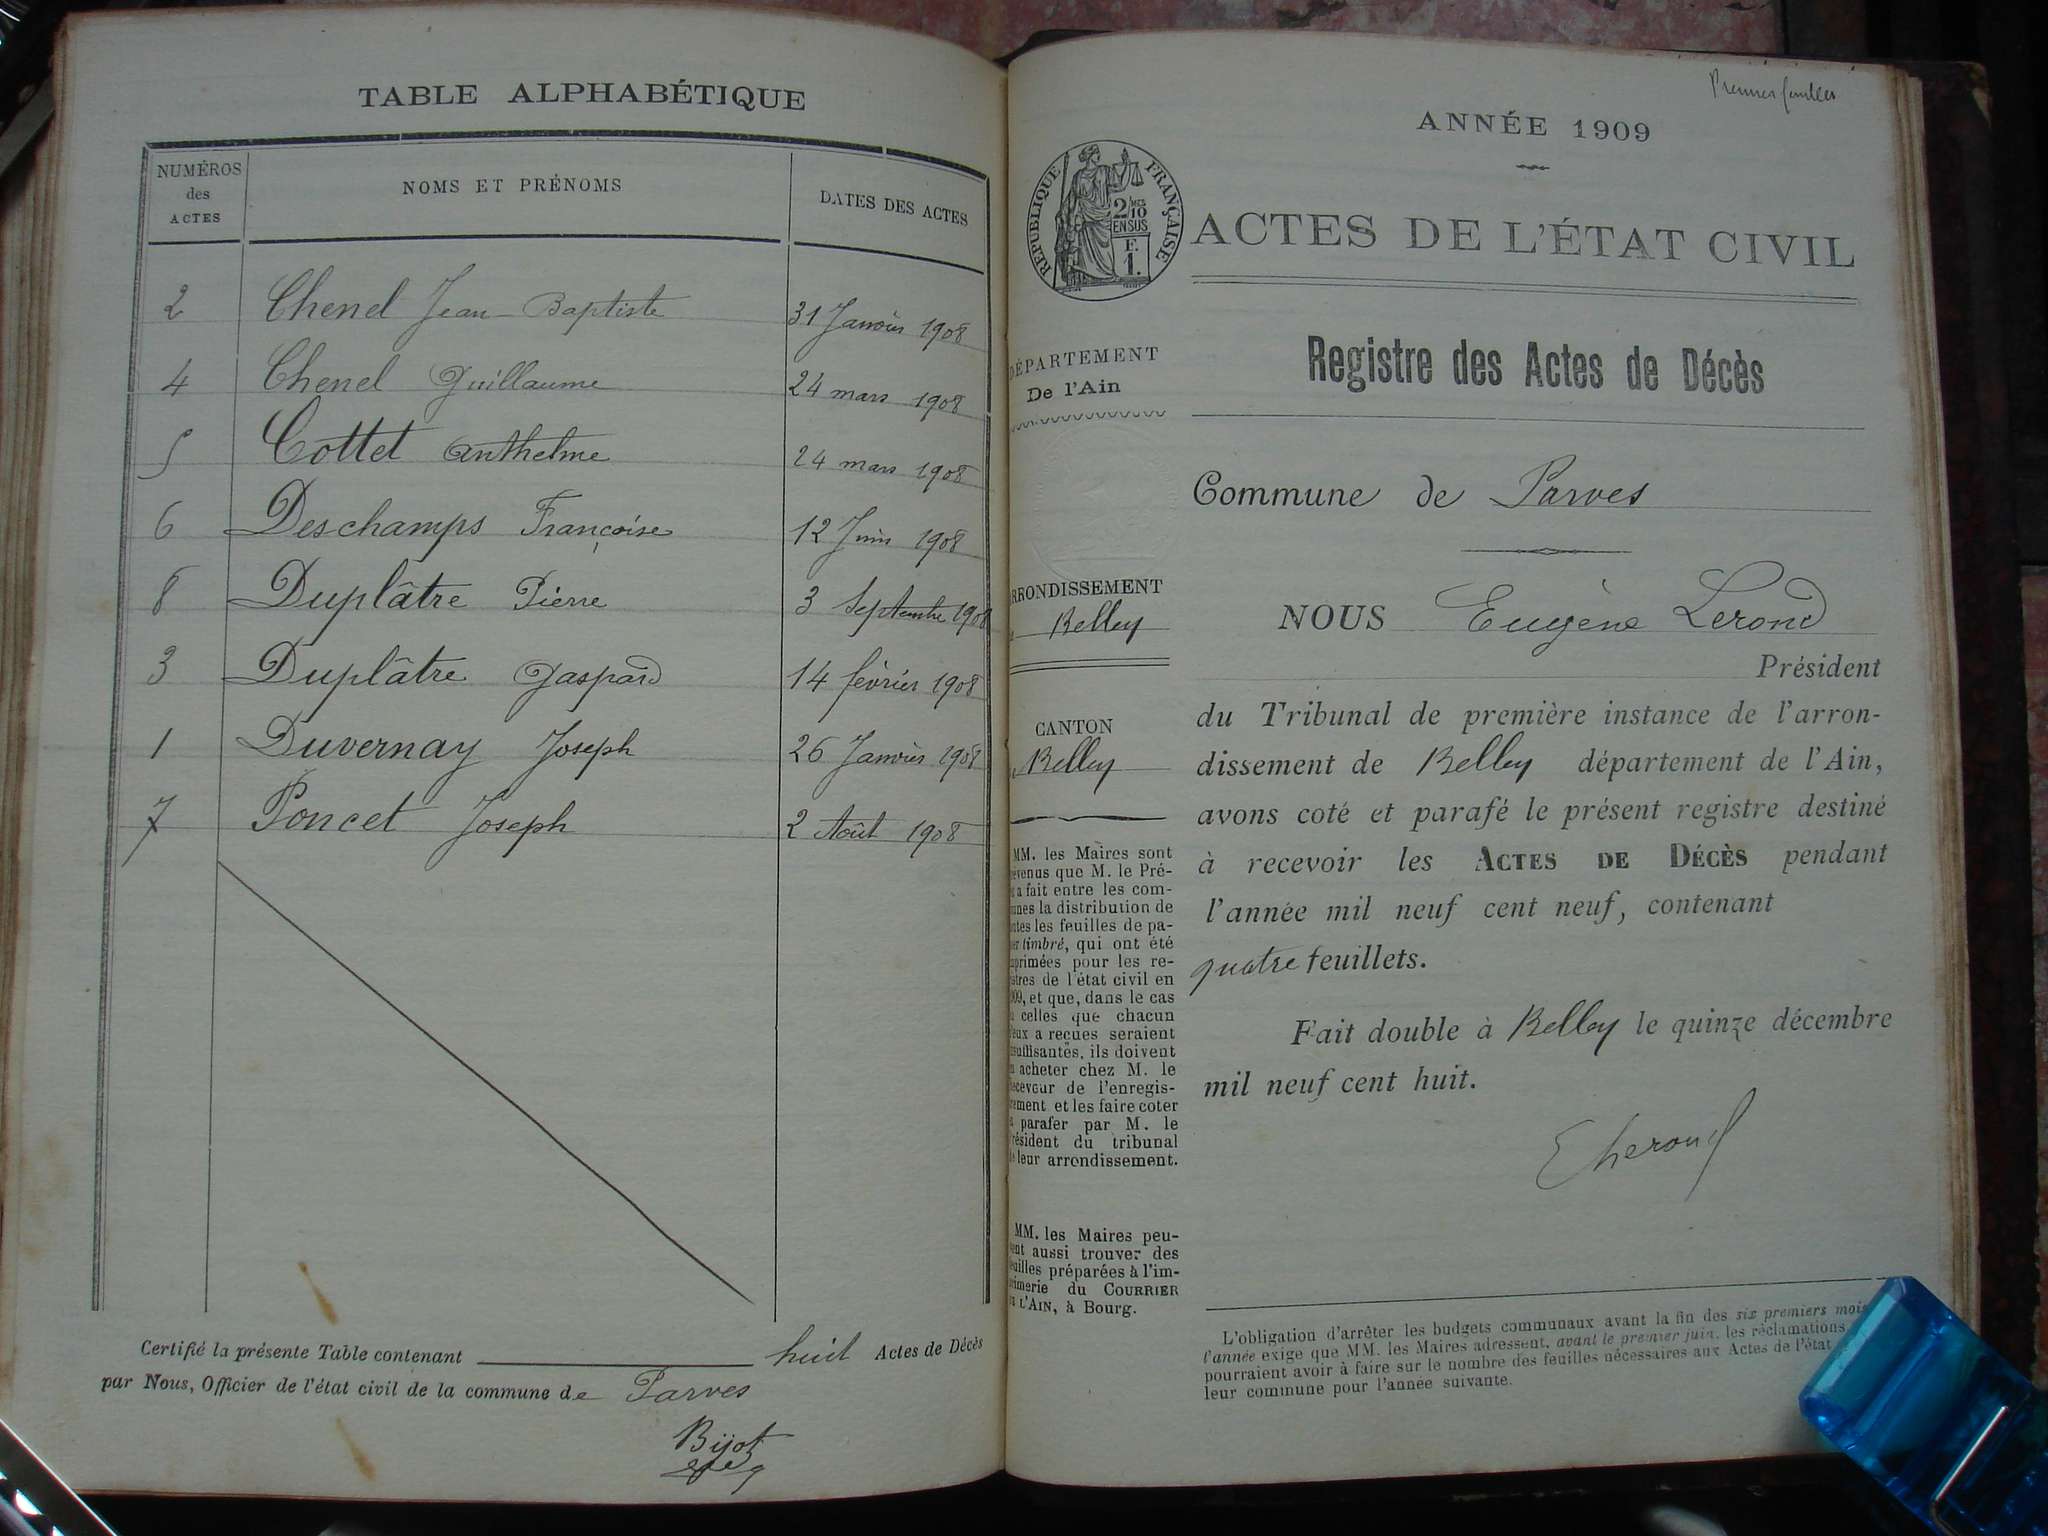 TABLE ALPHABÉTIQUE
NUMÉROS des ACTES
NOMS ET PRÉNOMS
DATES DES ACTES
2 Chenel Jean-Baptiste 31 Janvier 1908
4 Chenel Guillaume 24 mars 1908
5 Cottet Anthelme 24 mars 1908
6 Deschamps Françoise 12 Juin 1908
8 Duplâtre Pierre 3 Septembre 1908
3 Duplâtre Gaspard 14 février 1908
1 Duvernay Joseph 26 Janvier 1908
7 Poncet Joseph 2 Août 1908
Certifié la présente Table contenant huit Actes de Décès
par Nous, Officier de l'état civil de la commune de Parves
Bijot
Premier feuillet
ANNÉE 1909
RÉPUBLIQUE FRANÇAISE
2/10
EN SUS
F.
1.
ACTES DE L'ÉTAT CIVIL
DÉPARTEMENT
De l'Ain
Registre des Actes de Décès
Commune de Parves
ARRONDISSEMENT
Belley
CANTON
Belley
NOUS Eugène Lerond
Président
du Tribunal de première instance de l'arron-
dissement de Belley département de l'Ain,
avons coté et parafé le présent registre destiné
à recevoir les ACTES DE DÉCÈS pendant
l'année mil neuf cent neuf, contenant
quatre feuillets.
Fait double à Belley le quinze décembre
mil neuf cent huit.
E Lerond
MM. les Maires sont
venus que M. le Pré-
a fait entre les com-
unes la distribution de
utes les feuilles de pa-
er timbré, qui ont été
primées pour les re-
istres de l'état civil en
09, et que, dans le cas
celles que chacun
eux a reçues seraient
suffisantes, ils doivent
acheter chez M. le
eceveur de l'enregis-
rement et les faire coter
parafer par M. le
résident du tribunal
leur arrondissement.
MM. les Maires peu-
ent aussi trouver des
euilles préparées à l'im-
primerie du COURRIER
DE L'AIN, à Bourg.
L'obligation d'arrêter les budgets communaux avant la fin des six premiers mois
l'année exige que MM. les Maires adressent, avant le premier juin, les réclamations
pourraient avoir à faire sur le nombre des feuilles nécessaires aux Actes de l'état
leur commune pour l'année suivante.